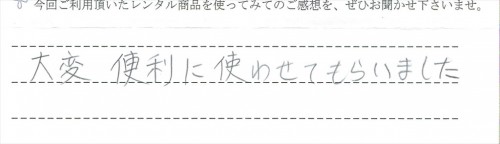 今回ご利用頂いたレンタル商品を使ってみてのご感想を、ぜひお聞かせ下さいませ。
大変 便利に使わせてもらいました